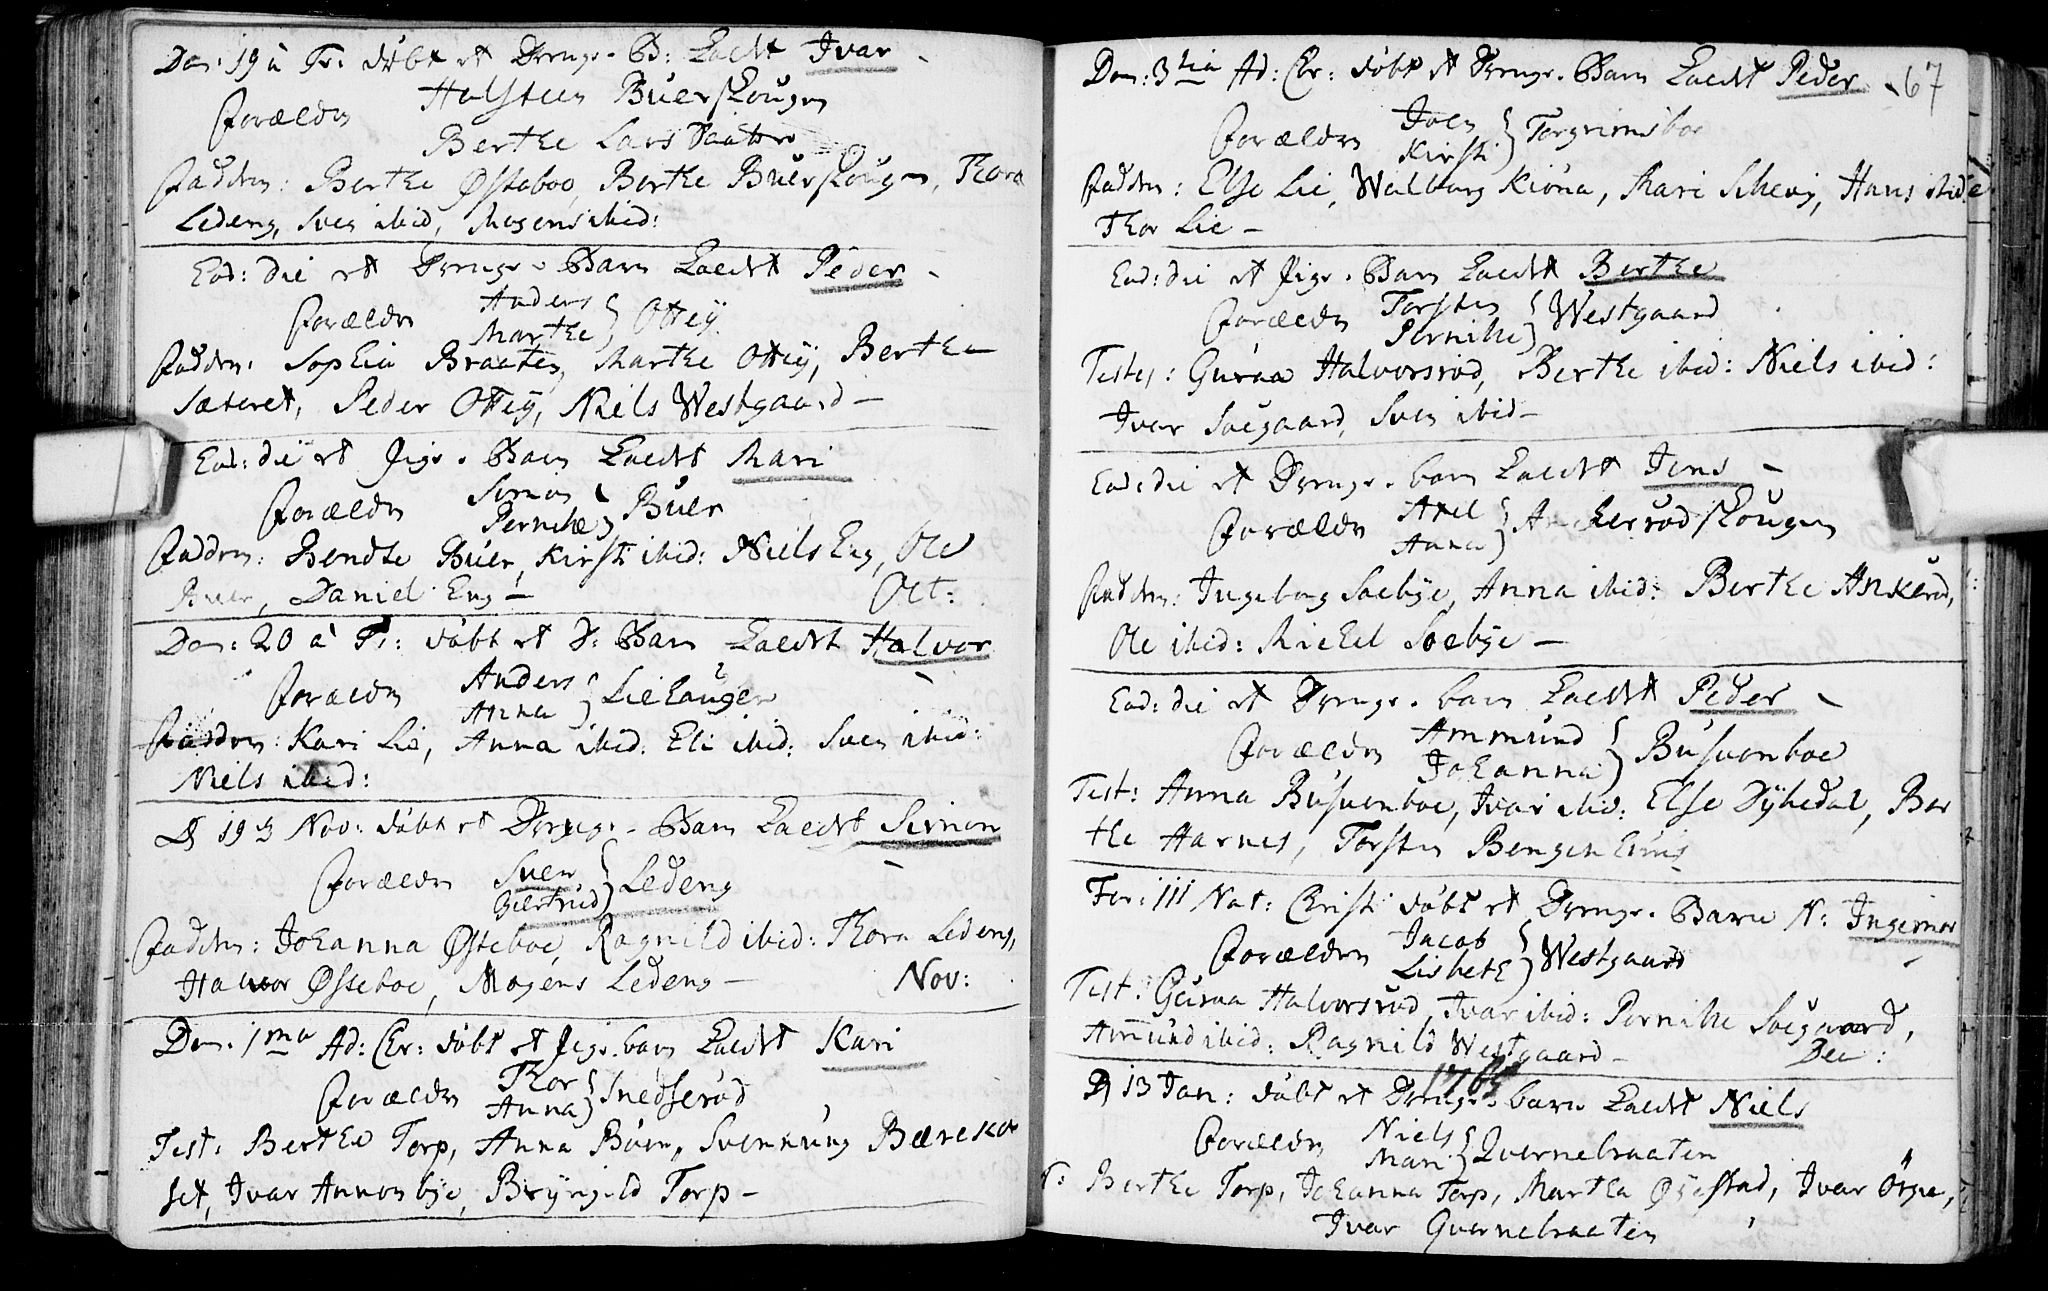 Dom: 19 à Tr: döbt et Drenge-B: kaldt Ivar
Forældre Halsteen Buerskougen
Berthe Lars Daatter
Faddere: Berthe Østeboe, Berthe Buerskougen, Thora
Ledeng, Sven ibid, Mogens ibid:
Ead: die et Drenge-Barn kaldt Peder
Forældre Anders Marthe } Otteÿ
Faddere: Sophia Braaten, Marthe Otteÿ, Berthe
Sæteret, Peder Otteÿ, Niels Westgaard -
Ead: die et Pige-Barn kaldt Mari
Forældre Simon Pernille } Buer
Faddere: Bendte Buer, Kirsti ibid: Niels Eng, Ole
Buer, Daniel Eng - Oct:
Dom: 20 à Tr: döbt et D: Barn kaldt Halvor
Forældre Anders Anna } Liehaugen
Faddere: Kari Lie, Anna ibid: Eli ibid: Sven ibid:
Niels ibid:
D 19 Nov: döbt et Drenge-Barn kaldt Simon
Forældre Sven Giertrud } Ledeng
Faddere: Johanna Østeboe, Ragnild ibid: Thora Ledeng,
Halvor Østeboe, Mogens Ledeng - Nov:
Dom: 1ma Ad: Chr: döbt et Pige barn kaldt Kari
Forældre Thor Anna } Snedserød
Test: Berthe Torp, Anna Büer, Svennung Bereko
set, Ivar Annonbye, Bryngild Torp -
Dom: 3tia Ad: Chr: döbt et Drenge-Barn kaldt Peder 67
Forældre Joen Kirsti } Torgrimsboe
Faddere: Else Lie, Walborg Kiöna, Mari Schevig, Hans ibid:
Thor Lie -
Ead: die et Pige-Barn kaldt Berthe
Forældre Torsten Pernille } Westgaard
Testes: Guraa Halvorsröd, Berthe ibid: Niels ibid:
Ivar Soegaard, Sven ibid -
Ead: die et Drenge-barn kaldt Jens -
Forældre Axel Anna } Ankerrödskougen
Faddere: Ingeborg Soebye, Anna ibid: Berthe Ankeröd,
Ole ibid: Michel Soebye -
Ead: die et Drenge-barn kaldt Peder
Forældre Ammund Johanna } Busuenboe
Test: Anna Busuenboe, Ivar ibid: Else Dyhedal, Ber
the Harnes, Torsten
Fer: III Nat: Christi döbt et Drenge-Barn N: Ingemar
Forældre Jacob Lisbeth } Westgaard
Test: Guraa Halvorsröd, Ivar ibid: Pernille Soegaard,
Ammund ibid: Ragnild Westgaard - Dec:
D 13 Jan: 1765 döbt et Drenge-barn kaldt Niels
Forældre Niels Mari } Qvernebraaten
T: Berthe Torp, Johanna Torp, Martha Øyestad, Ivar Örpe,
Ivar Qvernebraaten